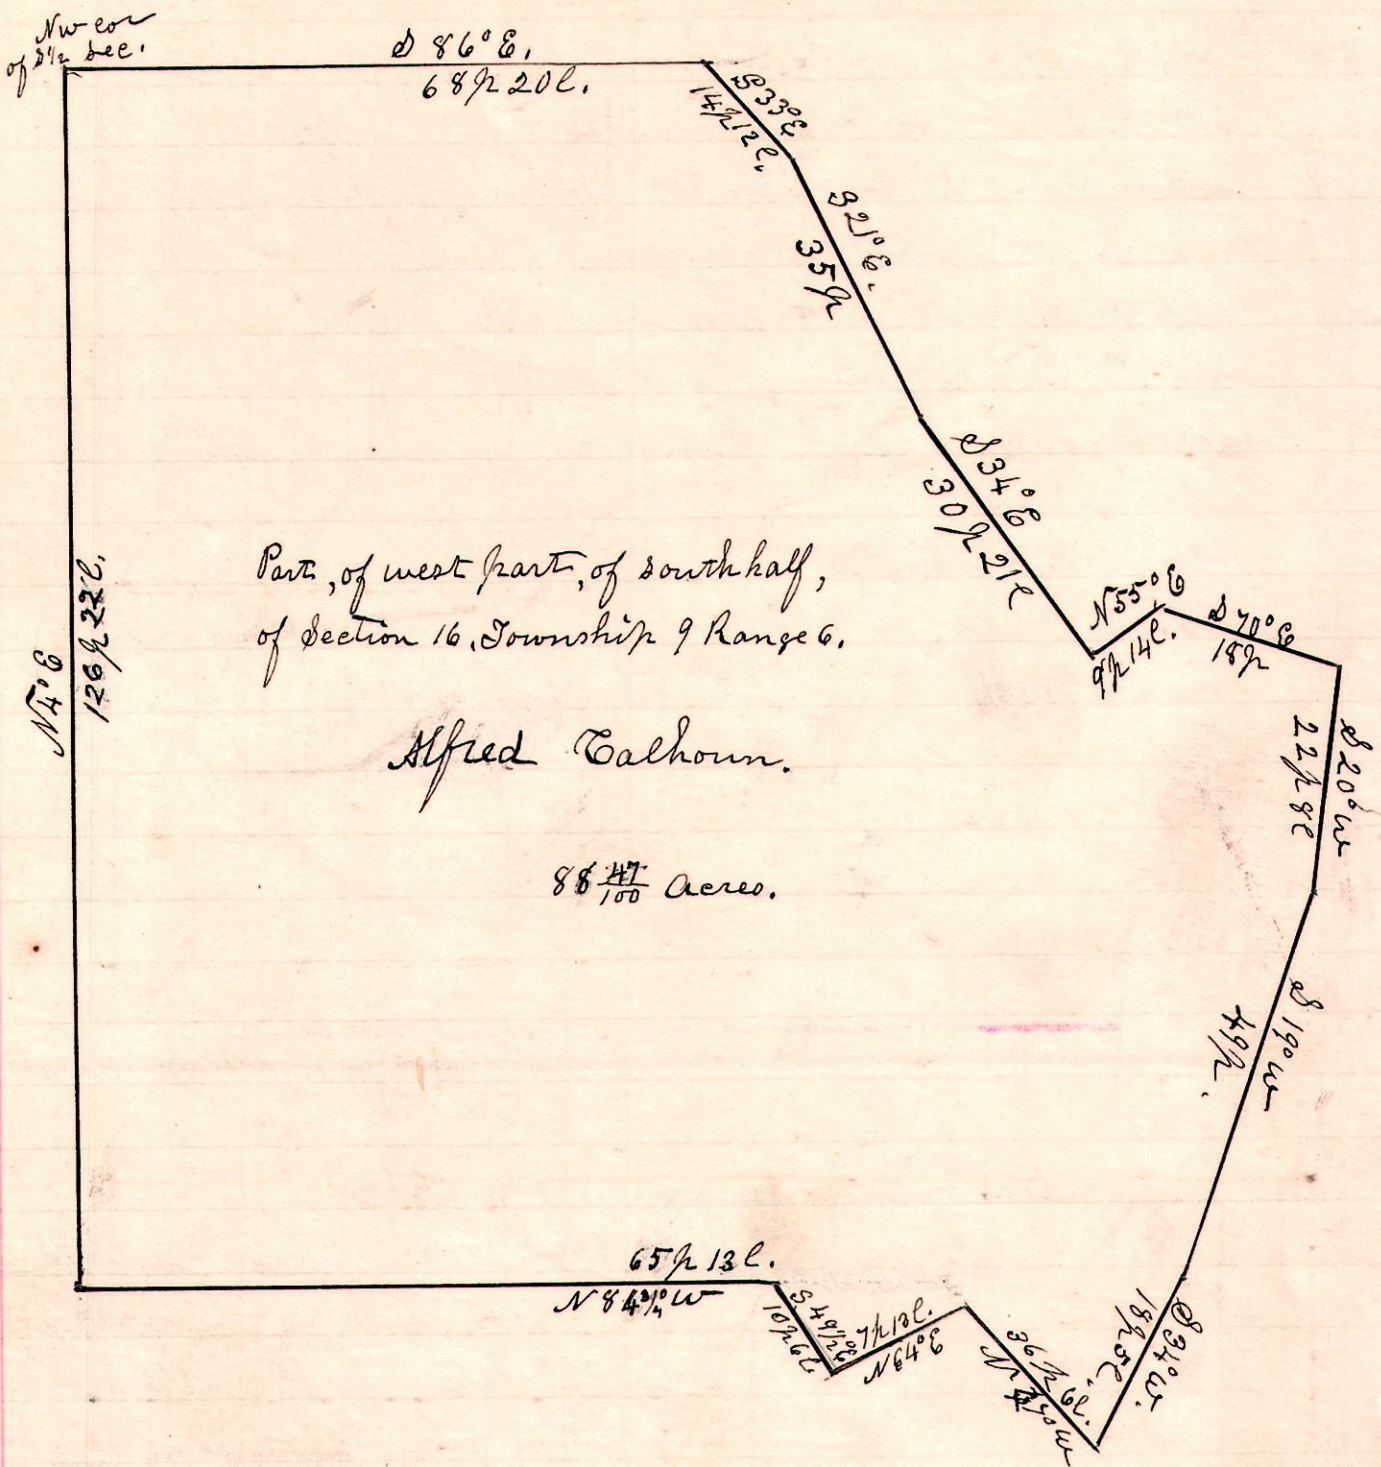 Nw cor
of S½ Sec.
S 86° E.
68p 20l.
S 33° E
14p 12l.
S 21° E.
35p
S 34° E
30p 21l
N 55° E
9p 14l.
S 70° E
18p
S 20° W
22p 8l
S 19° W
49p.
S 34° W.
18p 5l
36p 6l.
N
W
N 67° E
S 49½° E
10p 6l
65p 13l.
N 84¾° W
N 4° E
126p 22l.
Part, of west part, of south half,
of Section 16. Township 9 Range 6.
Alfred Calhoun.
88 47/100 Acres.